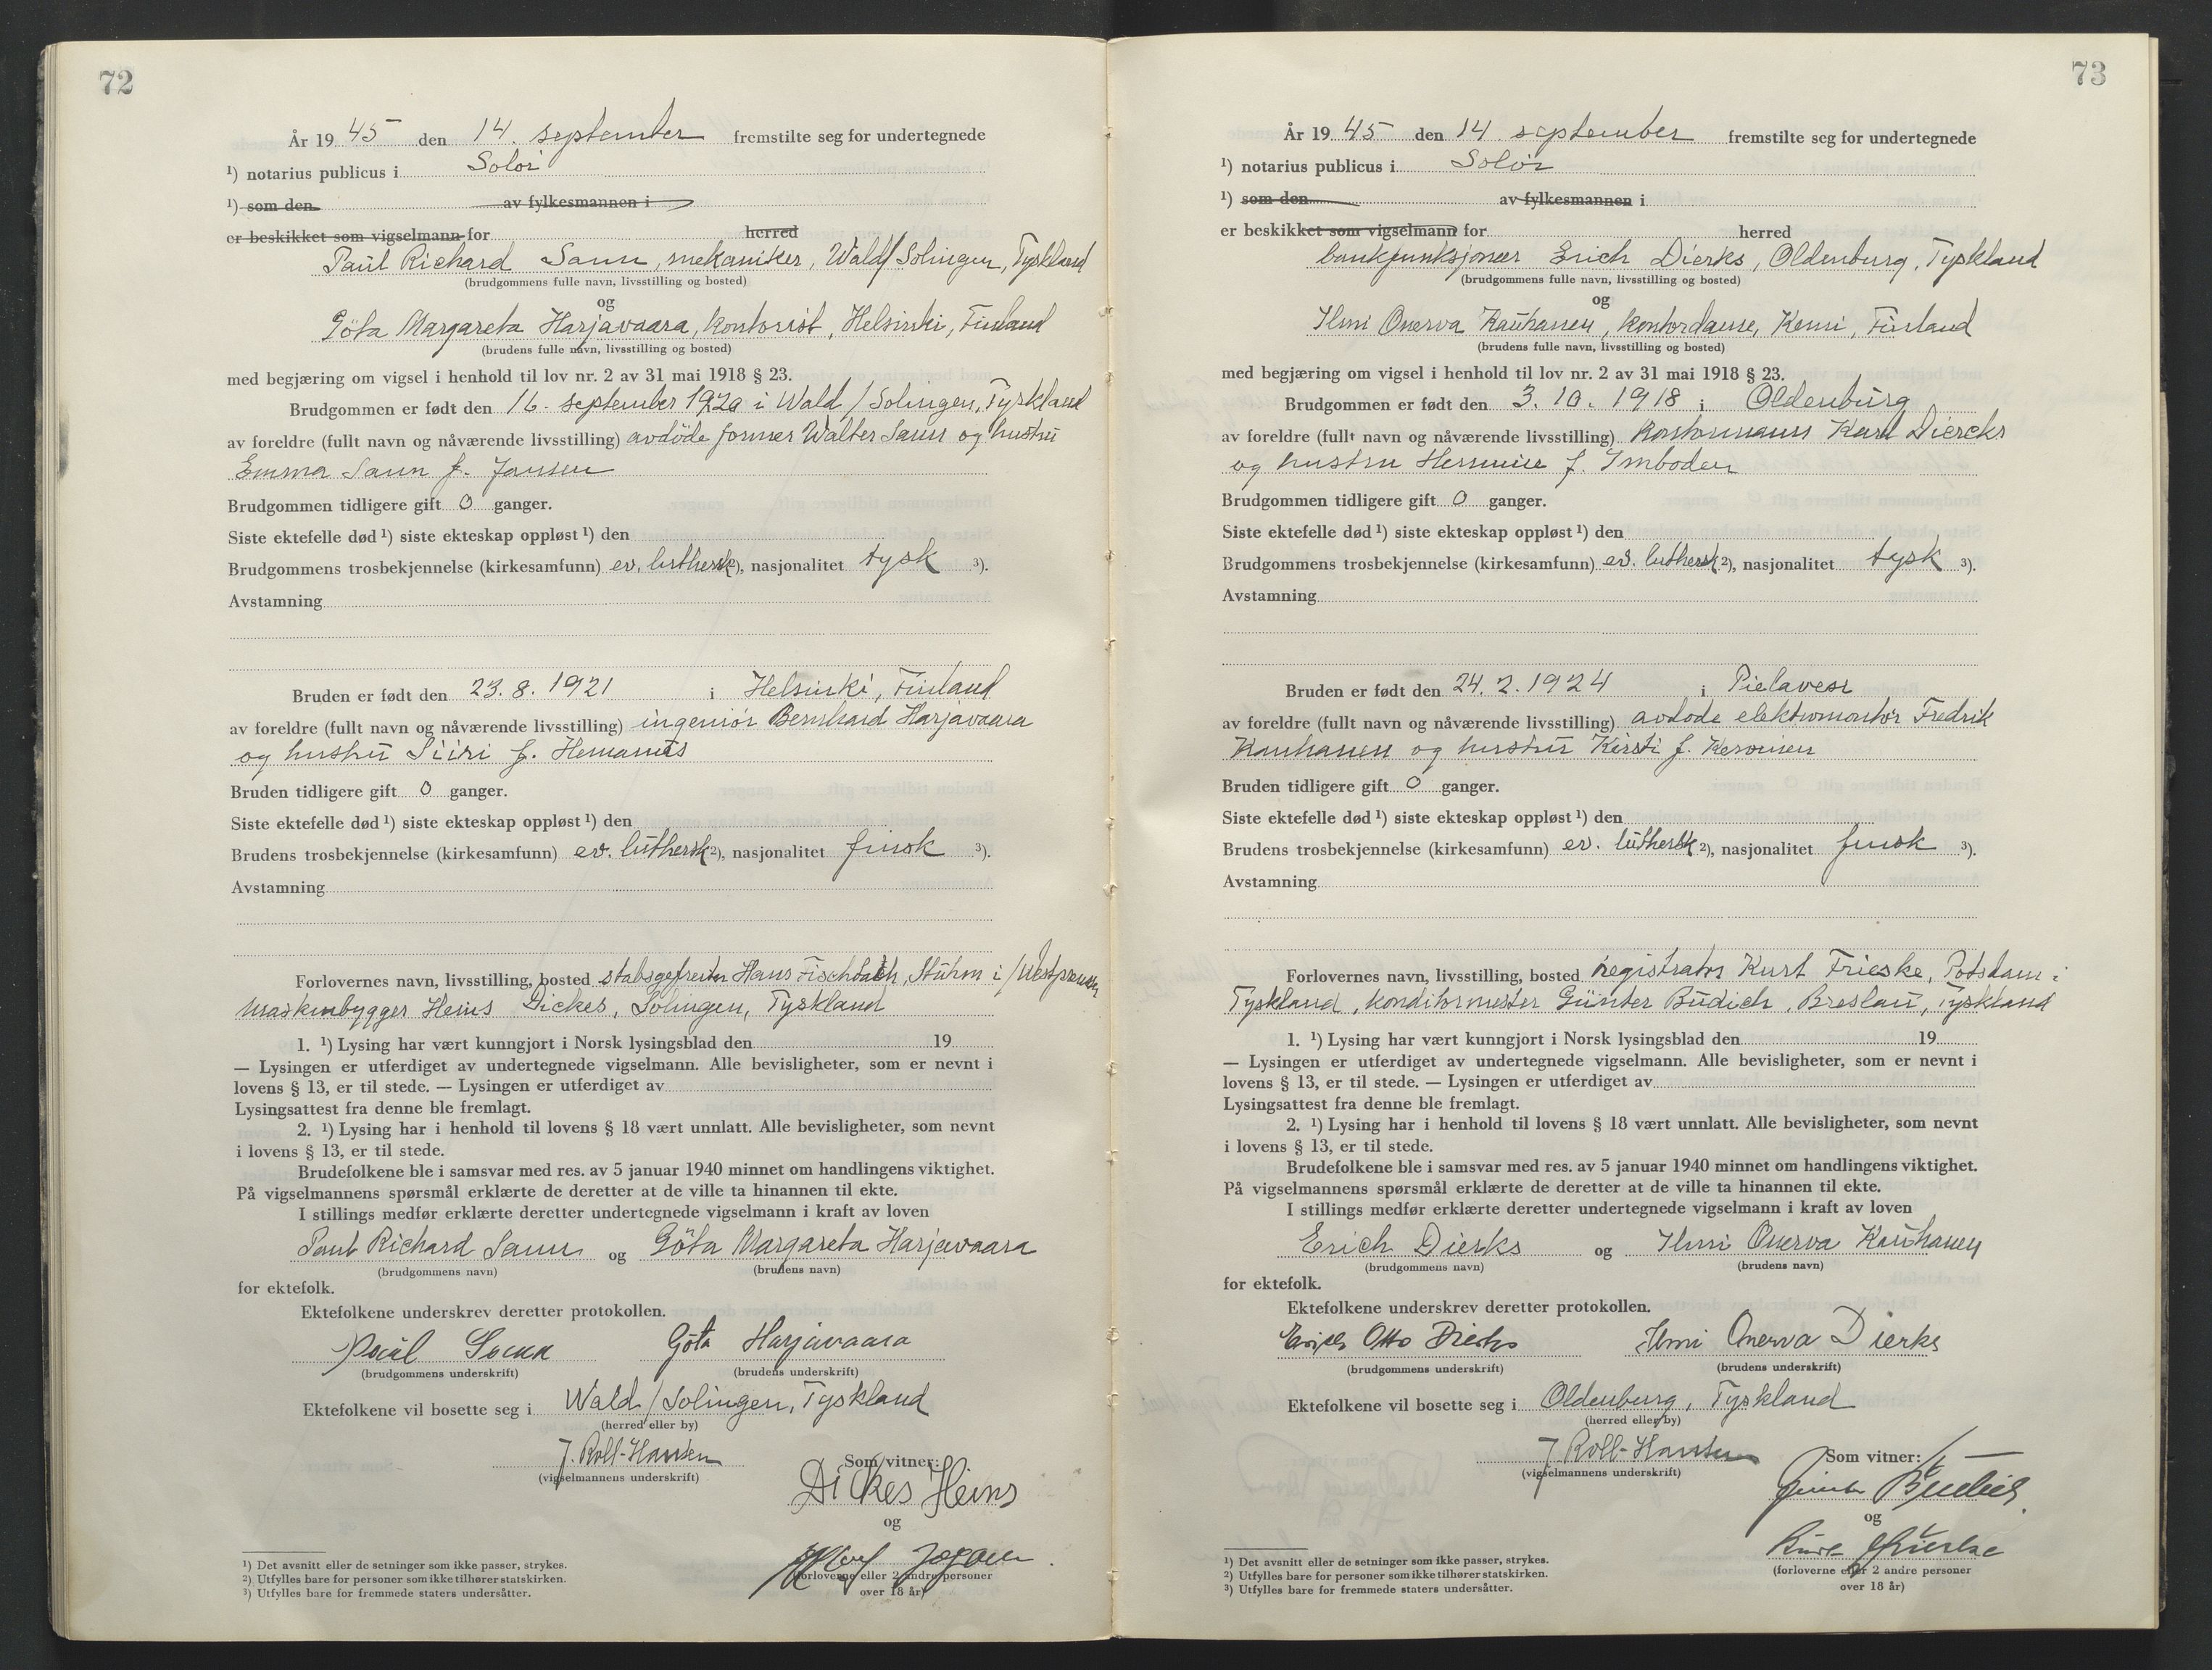 72
År 19 45 den 14. september fremstilte seg for undertegnede
¹) notarius publicus i Solør
¹) som den av fylkesmannen i
er beskikket som vigselmann for herred
Paul Richard Sann, mekaniker, Wald/Solingen, Tyskland
(brudgommens fulle navn, livsstilling og bosted)
og
Göta Margareta Harjavaara, kontorist, Helsinki, Finland
(brudens fulle navn, livsstilling og bosted)
med begjæring om vigsel i henhold til lov nr. 2 av 31 mai 1918 § 23.
Brudgommen er født den 16. september 1920 i Wald/Solingen, Tyskland
av foreldre (fullt navn og nåværende livsstilling) avdöde former Walter Sann og hustru
Emma Sann f. Jansen
Brudgommen tidligere gift 0 ganger.
Siste ektefelle død ¹) siste ekteskap oppløst ¹) den
Brudgommens trosbekjennelse (kirkesamfunn) ev. luthersk ²), nasjonalitet tysk ³).
Avstamning
Bruden er født den 23.8.1921 i Helsinki, Finland
av foreldre (fullt navn og nåværende livsstilling) ingeniør Bernhard Harjavaara
og hustru Siiri f.
Bruden tidligere gift 0 ganger.
Siste ektefelle død ¹) siste ekteskap oppløst ¹) den
Brudens trosbekjennelse (kirkesamfunn) ev. luthersk ²), nasjonalitet finsk ³).
Avstamning
Forlovernes navn, livsstilling, bosted stabsgefreiter Hans Stuhm i/Westpreussen
maskinbygger Heins Dickes, Solingen, Tyskland
1. ¹) Lysing har vært kunngjort i Norsk lysingsblad den 19
— Lysingen er utferdiget av undertegnede vigselmann. Alle bevisligheter, som er nevnt i
lovens § 13, er til stede. — Lysingen er utferdiget av
Lysingsattest fra denne ble fremlagt.
2. ¹) Lysing har i henhold til lovens § 18 vært unnlatt. Alle bevisligheter, som nevnt
i lovens § 13, er til stede.
Brudefolkene ble i samsvar med res. av 5 januar 1940 minnet om handlingens viktighet.
På vigselmannens spørsmål erklærte de deretter at de ville ta hinannen til ekte.
I stillings medfør erklærte deretter undertegnede vigselmann i kraft av loven
Paul Richard Sann og Göta Margareta Harjavaara
(brudgommens navn) (brudens navn)
for ektefolk.
Ektefolkene underskrev deretter protokollen.
Paul Sann Göta Harjavaara
(brudgommens underskrift) (brudens underskrift)
Ektefolkene vil bosette seg i Wald/Solingen, Tyskland
(herred eller by)
J. Roll-Hansen
(vigselmannens underskrift)
Som vitner:
Dickes Heins
og
(forloverne eller 2 andre personer
over 18 år)
¹) Det avsnitt eller de setninger som ikke passer, strykes.
²) Utfylles bare for personer som ikke tilhører statskirken.
³) Utfylles bare for fremmede staters undersåtter.
73
År 19 45 den 14 september fremstilte seg for undertegnede
¹) notarius publicus i Solør
¹) som den av fylkesmannen i
er beskikket som vigselmann for herred
bankfunksjonær Erich Dierks, Oldenburg, Tyskland
(brudgommens fulle navn, livsstilling og bosted)
og
Ilmi Onerva Kauhanen, kontordame, Kemi, Finland
(brudens fulle navn, livsstilling og bosted)
med begjæring om vigsel i henhold til lov nr. 2 av 31 mai 1918 § 23.
Brudgommen er født den 3.10.1918 i Oldenburg
av foreldre (fullt navn og nåværende livsstilling) kontormann Karl Diercks
og hustru Hermine f. Imboden
Brudgommen tidligere gift 0 ganger.
Siste ektefelle død ¹) siste ekteskap oppløst ¹) den
Brudgommens trosbekjennelse (kirkesamfunn) ev. luthersk ²), nasjonalitet tysk ³).
Avstamning
Bruden er født den 24.2.1924 i Pielavesi
av foreldre (fullt navn og nåværende livsstilling) avdøde elektromontør Fredrik
Kauhanen og hustru Kirsti f. Keronen
Bruden tidligere gift 0 ganger.
Siste ektefelle død ¹) siste ekteskap oppløst ¹) den
Brudens trosbekjennelse (kirkesamfunn) ev. luthersk ²), nasjonalitet finsk ³).
Avstamning
Forlovernes navn, livsstilling, bosted registrator Kurt Frieske, Potsdam i
Tyskland, konditormester Günter Büdich, Breslau, Tyskland
1. ¹) Lysing har vært kunngjort i Norsk lysingsblad den 19
— Lysingen er utferdiget av undertegnede vigselmann. Alle bevisligheter, som er nevnt i
lovens § 13, er til stede. — Lysingen er utferdiget av
Lysingsattest fra denne ble fremlagt.
2. ¹) Lysing har i henhold til lovens § 18 vært unnlatt. Alle bevisligheter, som nevnt
i lovens § 13, er til stede.
Brudefolkene ble i samsvar med res. av 5 januar 1940 minnet om handlingens viktighet.
På vigselmannens spørsmål erklærte de deretter at de ville ta hinannen til ekte.
I stillings medfør erklærte deretter undertegnede vigselmann i kraft av loven
Erich Dierks og Ilmi Onerva Kauhanen
(brudgommens navn) (brudens navn)
for ektefolk.
Ektefolkene underskrev deretter protokollen.
Erich Otto Dierks Ilmi Onerva Dierks
(brudgommens underskrift) (brudens underskrift)
Ektefolkene vil bosette seg i Oldenburg, Tyskland
(herred eller by)
J. Roll-Hansen
(vigselmannens underskrift)
Som vitner:
Günter Büdich
og
Kurt Frieske
(forloverne eller 2 andre personer
over 18 år)
¹) Det avsnitt eller de setninger som ikke passer, strykes.
²) Utfylles bare for personer som ikke tilhører statskirken.
³) Utfylles bare for fremmede staters undersåtter.